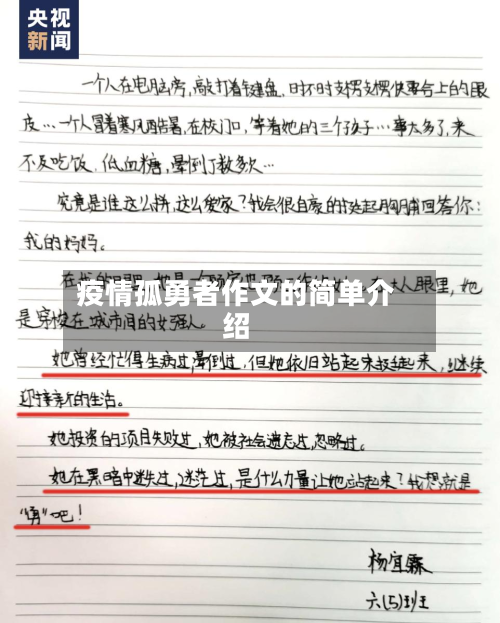 央视
新闻
一个人在电脑旁，敲打着键盘，时不时支撑支撑快要合上的眼
皮…一个人冒着寒风酷暑，在校门口，等着她的三个孩子…事太多了，来
不及吃饭，低血糖，晕倒了数多次…
究竟是谁这么拼，这么爱家？我会很自豪的挺起胸脯回答你：
我的妈妈。
疫情孤勇者作文的简单介
绍
人眼里，她
是穿梭在城市间的女强人。
她曾经忙得生病过，晕倒过，但她依旧站起来挺起来，继续
迎接新的生活。
她投资的项目失败过，她被社会遗忘过，忽略过。
她在黑暗中迷失过，迷茫过，是什么力量让她站起来？我想就是
"勇"吧！
杨宜霖
六(5)班